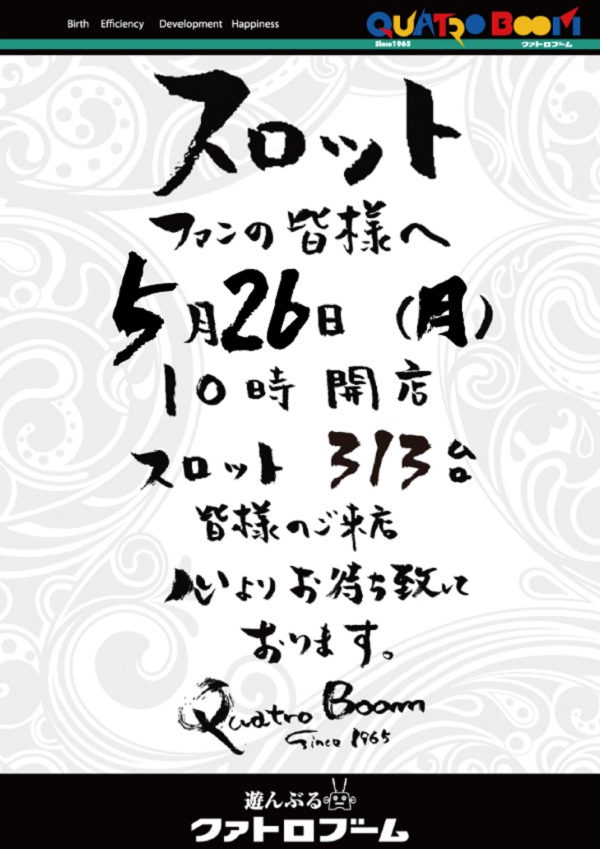 Birth Efficiency Development Happiness
QUATRO BOOM
Since1965 クァトロブーム
スロット
ファンの皆様へ
5月26日(月)
10時開店
スロット 313台
皆様のご来店
心よりお待ち致して
おります。
Quatro Boom
Since 1965
遊んぶる
クァトロブーム